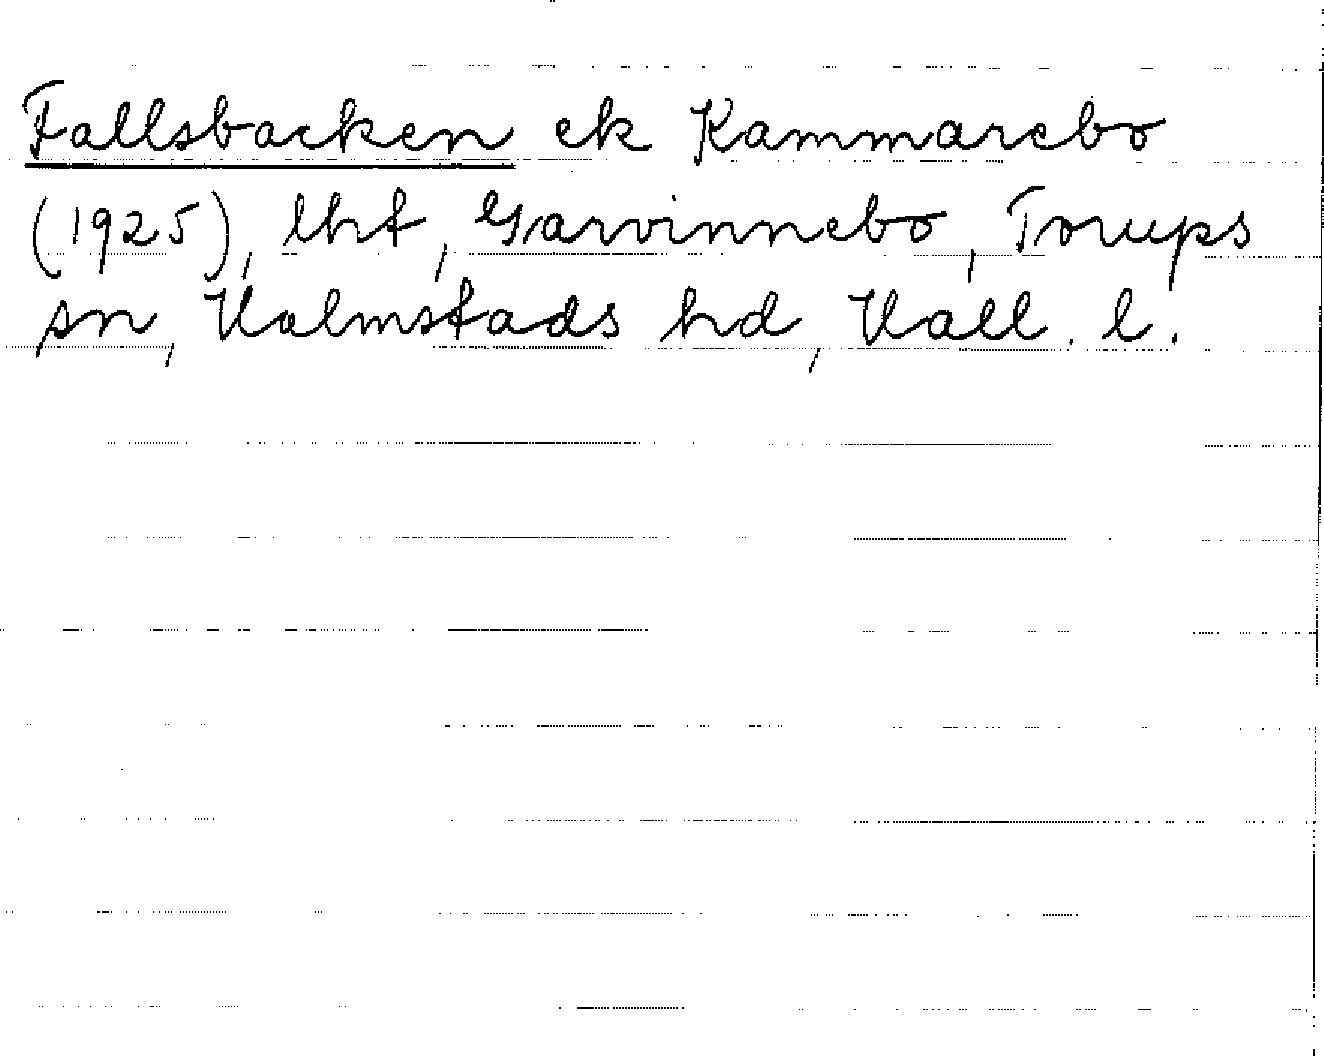 Fallsbacken ek Kammarebo
(1925), lht, Garvinnebo, Torups
sn, Halmstads hd, Hall. l.